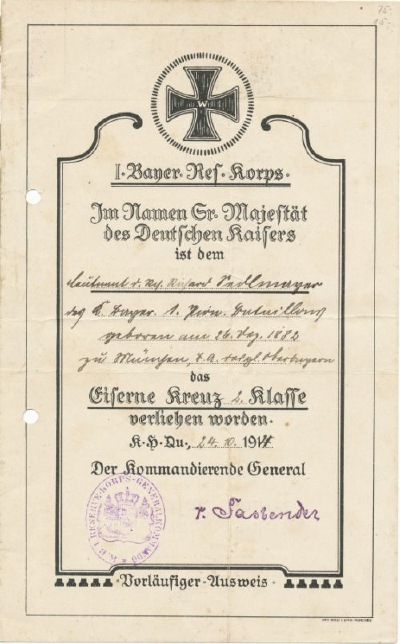 75.-
W
I. Bayer. Res. Korps.
Im Namen Sr. Majestät
des Deutschen Kaisers
ist dem
Leutnant d. Res. Richard Sedlmayer
des K. Bayer. 1. Pion. Bataillons
geboren am 26. Dez. 1882
zu München, Oberbayern
das
Eiserne Kreuz 2. Klasse
verliehen worden.
K. H. Qu., 24.10. 1914
Der Kommandierende General
v. Fasbender
K. B. I. RESERVE-KORPS-GENERALKOMMANDO
Vorläufiger Ausweis